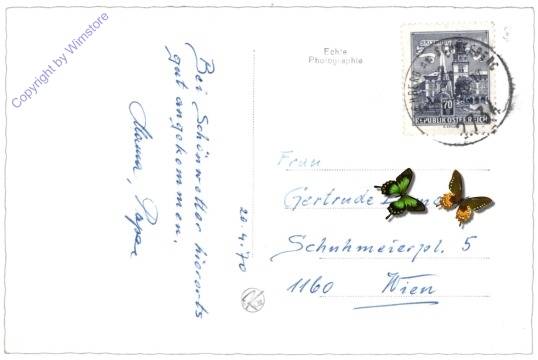 Copyright by Wimstore
Bei Schönwetter hierorts
gut angekommen.
Mama, Papa
20.4.70
Echte
Photographie
70
REPUBLIK ÖSTERREICH
Frau
Gertrude
Schuhmeierpl. 5
1160 Wien